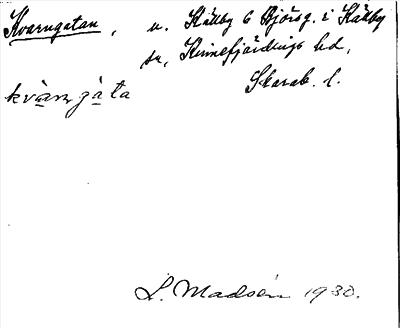 Kvarngatan, u. Källby 6 Björsg. i Källby
sn, Kinnefjärdings hd,
Skarab. l.
kvàṇgàta
L. Madsén 1930.